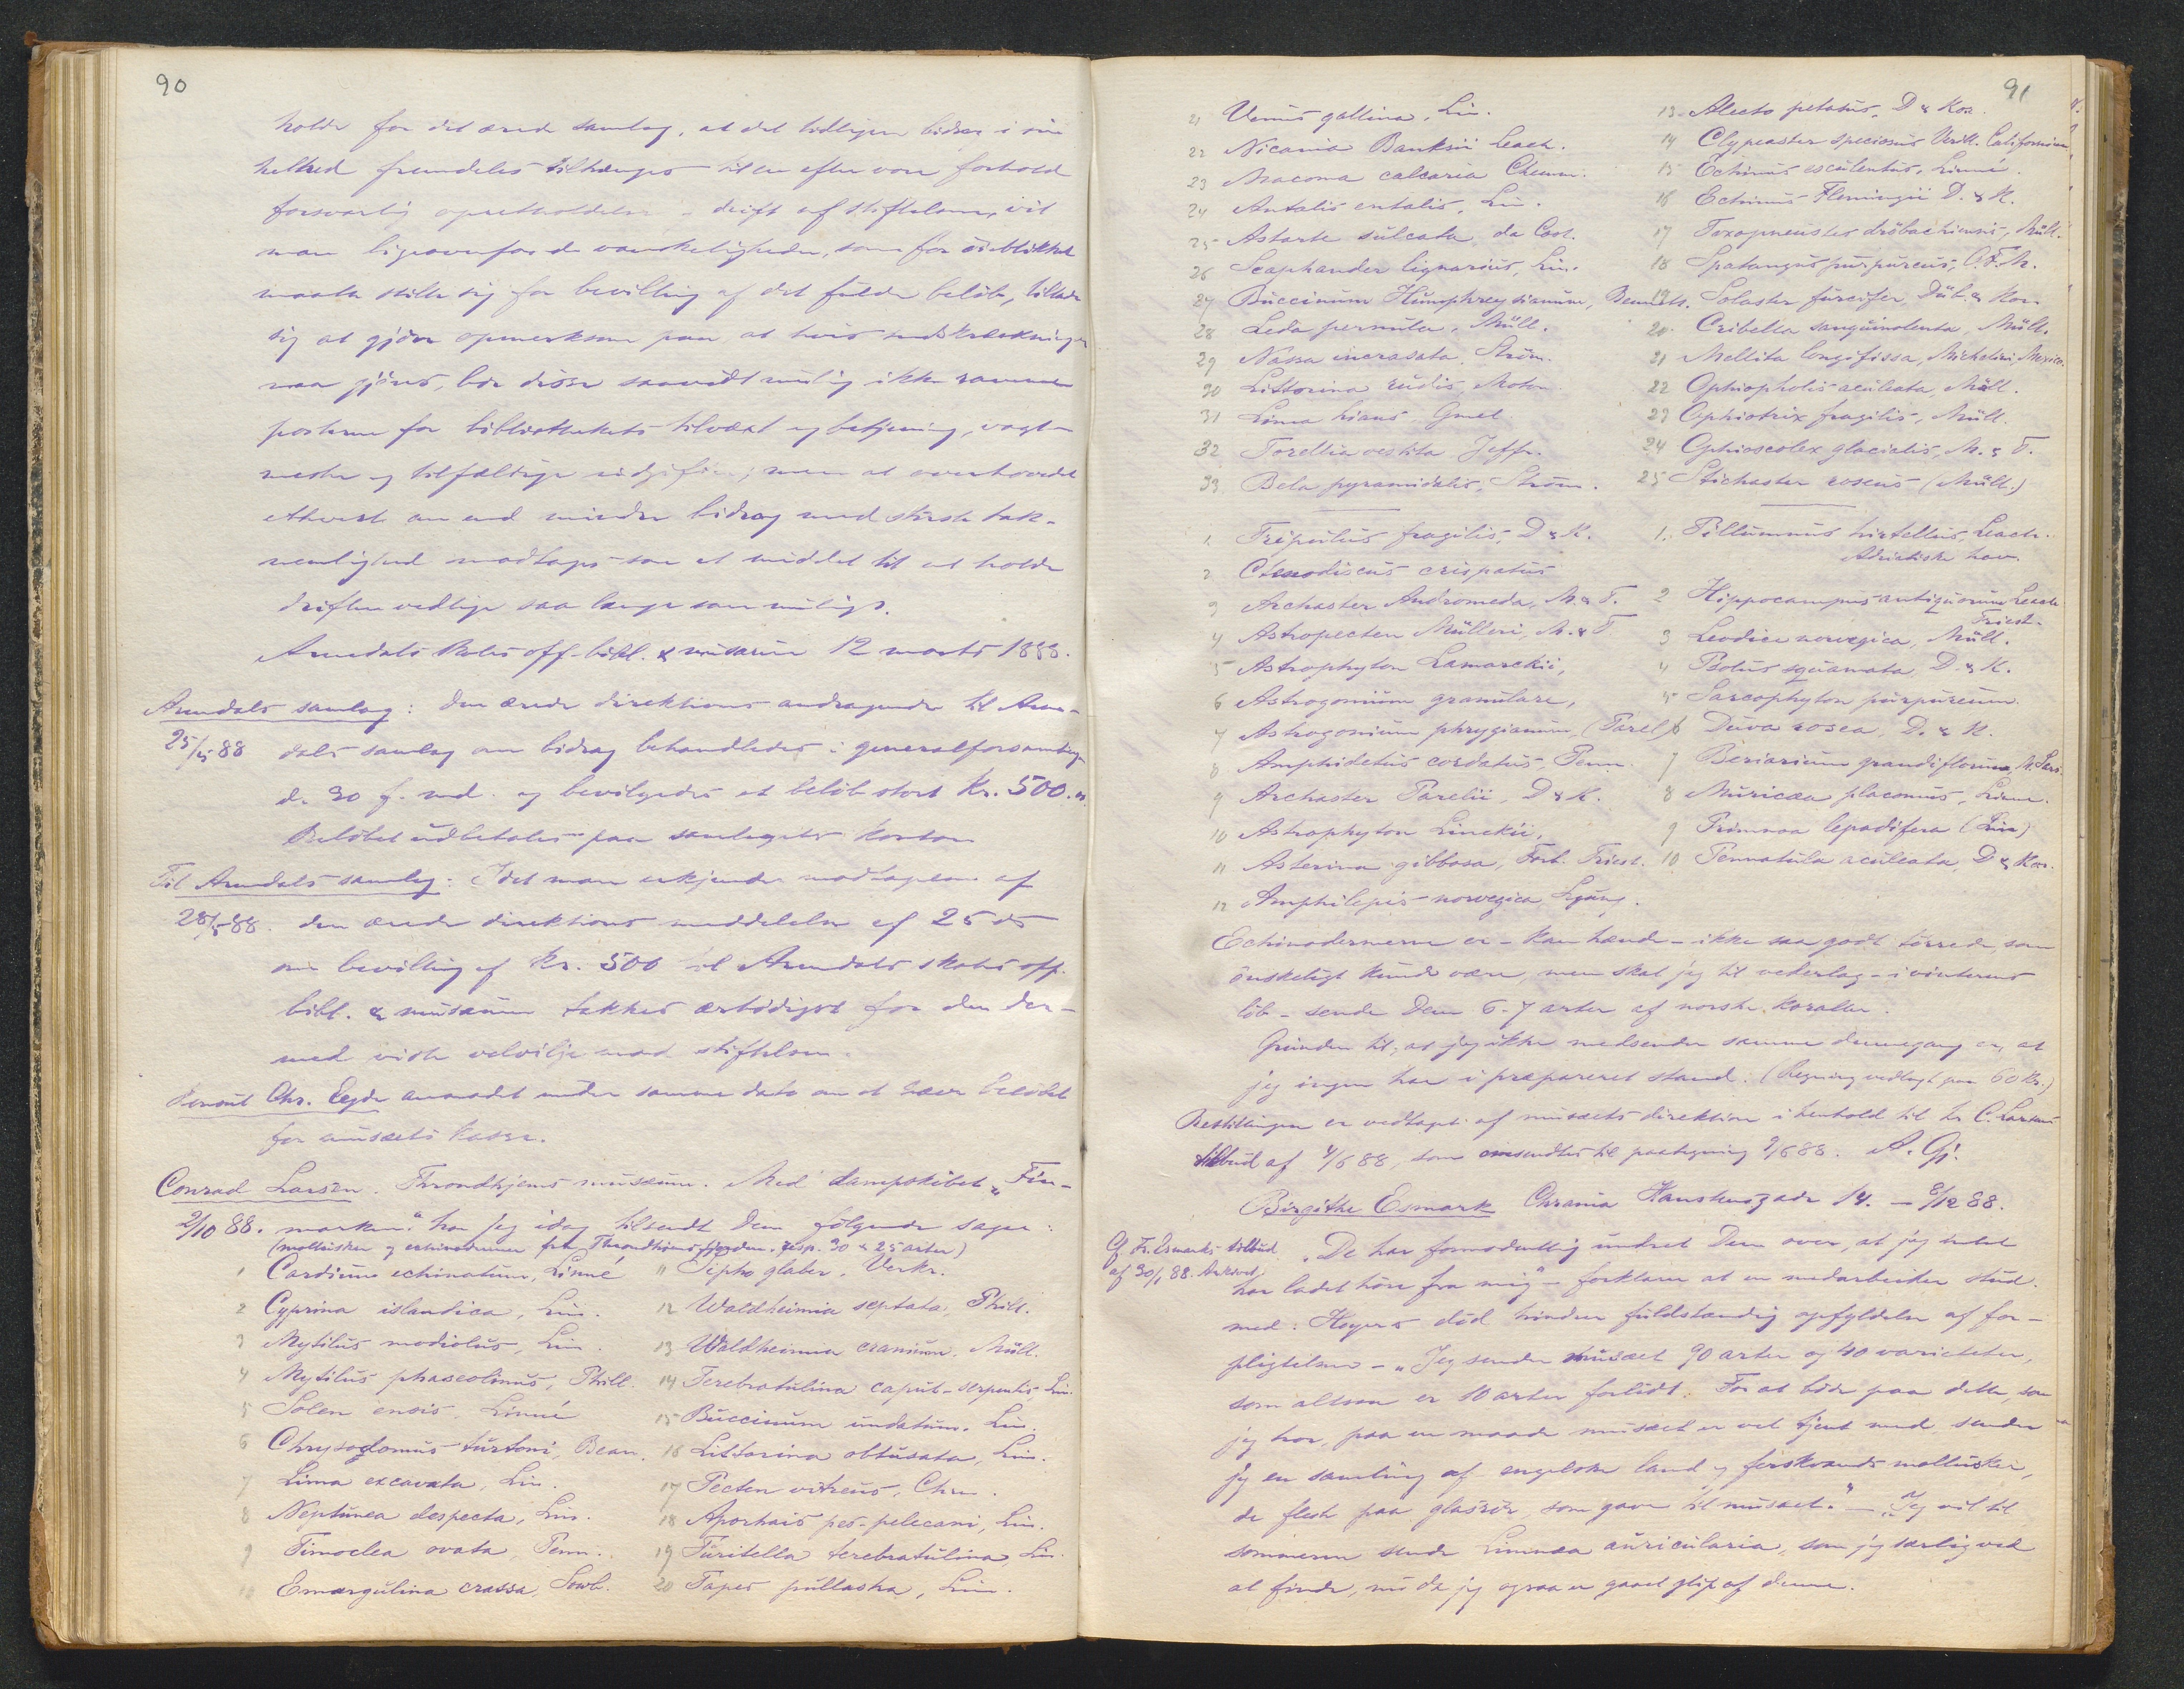 90
holde for det ærede samlag, at det tidligere bidrag i sin
helhed fremdeles tiltrænges til en efter vore forhold
forsvarlig opretholdelse drift af stiftelsen, vil
man ligeoverfor de vanskeligheder, som for öieblikket
maatte stille sig for bevilling af det fulde belöb, tillade
sig at gjöre opmerksom paa at hvis
maa gjöres, bör disse saavidt mulig ikke ramme
posterne for bibliothekets tilvæxt og betjening, vagt-
mester og tilfældige udgifter; men at overhovedet
ethvert om end mindre bidrag med störste tak-
nemlighed modtages som et middel til at holde
driften vedlige saa længe som muligt.
Arendals skoles off. bibl. & musæum 12 marts 1888.
Arendals samlag: Den ærede direktions andragende til Aren-
25/5 88 dals samlag om bidrag behandledes i generalforsamling
d. 30 f. md. og bevilgedes et belöb stort Kr. 500.
Belöbet udbetales paa samlagets kontor
Til Arendals samlag: Idet man erkjender modtagelsen af
28/5 88. den ærede direktions meddelelse af 25 ds
om bevilling af Kr. 500 til Arendals skoles off.
bibl. & musæum takkes ærbödigst for den der-
med viste velvilje mod stiftelsen.
Konsul Chr. Eyde anmodet under samme dato om at hæve belöbet
for musæets kasse.
Conrad Larsen. Throndhjems musæum. Med dampskibet "Fin-
2/10 88. marken" har jeg idag tilsendt Dem fölgende sager:
(mollusker og echinodermer fra Throndhjemsfjorden, resp. 30 & 25 arter)
1 Cardium echinatum, Linné
2 Cyprina islandica, Lin.
3 Mytilus modiolus, Lin.
4 Mytilus phaseolinus, Phill.
5 Solen ensis, Linné
6 Chrysoglomus turtoni, Bean.
7 Lima excavata, Lin.
8 Neptunea despecta, Lin.
9 Timoclea ovata, Penn.
10 Emargulina crassa, Sowb.
11 Sipho glaber. Verkr.
12 Waldheimia septata, Phill.
13 Waldheimia cranium, Müll.
14 Terebratulina caput-serpentis, Lin.
15 Buccinum undatum. Lin.
16 Littorina obtusata, Lin.
17 Pecten vitreus, Chem.
18 Aporhais pes-pelecani, Lin.
19 Turitella terebratulina Lin.
20 Tapes pullastra, Lin.
91
21 Venus gallina, Lin.
22 Nicania Banksii Leach.
23 Macoma calcaria Chemn.
24 Antalis entalis, Lin.
25 Astarte sulcata, da Cost.
26 Scaphander lignarius, Lin.
27 Buccinum Humphreysianum, Bennett.
28 Leda pernula, Müll.
29 Nassa incrasata. Ström.
30 Littorina rudis, Maton.
31 Lima hians. Gmel.
32 Torellia vestita Jeffr.
33 Bela pyramidalis, Ström.
13 Alecto petasus, D & Kor.
14 Clypeaster speciosus Verill. Californien
15 Echinus esculentus, Linné.
16 Echinus Flemingii D. & K.
17 Toxopneustes dröbachiensis, Müll.
18 Spatangus purpureus, O.F.M.
19 Solaster furcifer, Düb. & Kor.
20. Cribella sanguinolenta, Müll.
21 Mellita longifissa, Michelini, Mexico.
22 Ophiopholis aculeata, Müll.
23 Ophiotrix fragilis, Müll.
24 Ophioscolex glacialis, M. & T.
25 Stichaster roseus (Müll.)
1. Tripulus fragilis, D & K.
2 Ctenodiscus crispatus
3 Archaster Andromeda, M. & T.
4 Astropecten Mülleri, M. & T
5 Astrophyton Lamarckii,
6 Astrogonium granulare,
7 Astrogonium phrygianum, (Parel)
8 Amphidetus cordatus, Penn.
9 Archaster Parelii, D & K.
10 Astrophyton Linckii,
11 Asterina gibbosa, Forb. Triest.
12 Amphilepis norvegica Ljung.
1. Pillumnus hirtellus, Leach.
Adriatiske hav.
2 Hippocampus antiquorum Leach
Triest.
3 Leodice norvegica, Müll.
4 Psolus squamata, D. & K.
5 Sarcophyton purpureum.
6 Duva rosea, D. & K.
7 Beriarium grandiflorum, M. Sars.
8 Muricæa placomus, Linn.
9 Primnoa lepadifera (Lin)
10 Pennatula aculeata, D & Kor.
Echinodermerne er - kan hænde - ikke saa godt törrede, som
önskeligt kunde være, men skal jeg til vederlag - i vinterens
löb - sende Dem 6-7 arter af norske koraller.
Grunden til, at jeg ikke medsender samme dennegang er, at
jeg ingen har i præpareret stand. (Regning vedlagt paa 60 Kr.)
Bestillingen er vedtaget af musæets direktion i henhold til hr C. Larsens
tilbud af 4/6 88, som omsendtes til paategning 9/6 88. A. Gj.
Birgithe Esmark Chrania Hanstensgade 14. - 8/12 88.
Cf Fr. Esmarks tilbud
af 30/1 88. Arkivet.
"De har formodentlig undret Dem over, at jeg intet
har ladet höre fra mig" - forklarer at en medarbeider stud.
med. Hoyers död hindrer fuldstændig opfyldelse af for-
pligtelsen - "Jeg sender musæet 90 arter og 40 varieteter,
som altsaa er 10 arter forlidt. For at böde paa dette, som
jeg tror, paa en maade musæet er vel tjent med, sender
jeg en samling af engelske land og ferskvands mollusker,
de fleste paa glasrör som gave til musæet." - "Jeg vil til
sommeren sende Limnæa auricularia, som jeg særlig ved
at finde, nu da jeg ogsaa er gaaet glip af denne.